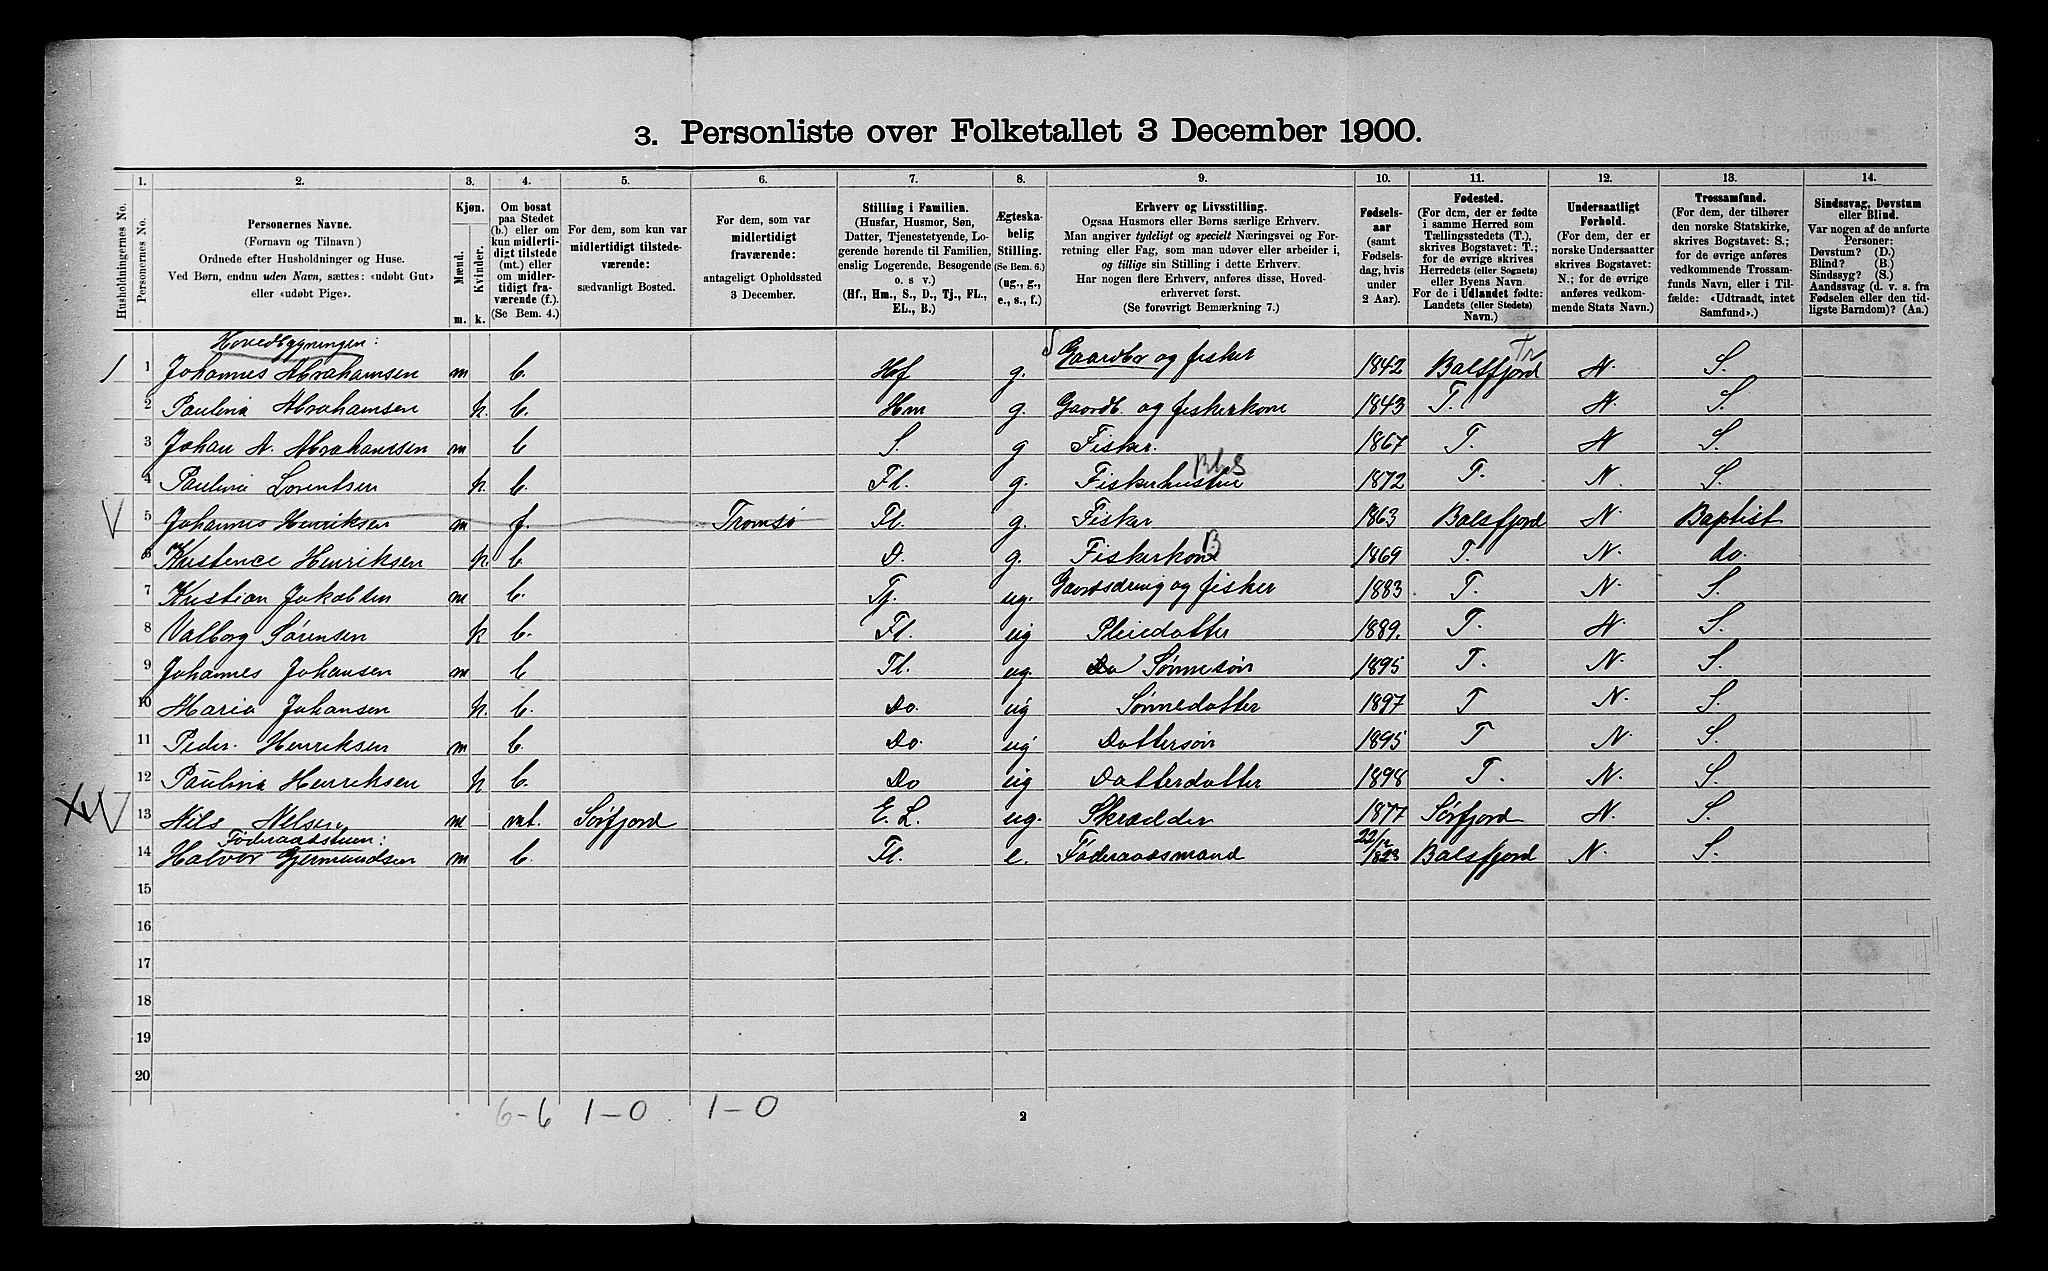 3. Personliste over Folketallet 3 December 1900.
1. 2. 3. 4. 5. 6. 7. 8. 9. 10. 11. 12. 13. 14.
Husholdningernes No.
Personernes No.
Personernes Navne.
(Fornavn og Tilnavn)
Ordnede efter Husholdninger og Huse.
Ved Børn, endnu uden Navn, sættes: «udøbt Gut»
eller «udøbt Pige».
Kjøn.
Mænd.
Kvinder.
m. k.
Om bosat
paa Stedet
(b.) eller om
kun midlerti-
digt tilstede
(mt.) eller
om midler-
tidigt fra-
værende (f.).
(Se Bem. 4.)
For dem, som kun var
midlertidigt tilstede-
værende:
sædvanligt Bosted.
For dem, som var
midlertidigt
fraværende:
antageligt Opholdssted
3 December.
Stilling i Familien.
(Husfar, Husmor, Søn,
Datter, Tjenestetyende, Lo-
gerende hørende til Familien,
enslig Logerende, Besøgende
o. s v.)
(Hf., Hm., S., D., Tj., FL.,
EL., B.)
Ægteska-
belig
Stilling.
(Se Bem. 6.)
(ug., g.,
e., s., f.)
Erhverv og Livsstilling.
Ogsaa Husmors eller Børns særlige Erhverv.
Man angiver tydeligt og specielt Næringsvei og For-
retning eller Fag, som man udøver eller arbeider i,
og tillige sin Stilling i dette Erhverv.
Har nogen flere Erhverv, anføres disse, Hoved-
erhvervet først.
(Se forøvrigt Bemærkning 7.)
Fødsels-
aar
(samt
Fødsels-
dag, hvis
under
2 Aar).
Fødested.
(For dem, der er fødte
i samme Herred som
Tællingsstedets (T.),
skrives Bogstavet: T.;
for de øvrige skrives
Herredets (eller Sognets)
eller Byens Navn.
For de i Udlandet fødte:
Landets (eller Stedets)
Navn.)
Undersaatligt
Forhold.
(For dem, der er
norske Undersaatter
skrives Bogstavet:
N.; for de øvrige
anføres vedkom-
mende Stats Navn.)
Trossamfund.
(For dem, der tilhører
den norske Statskirke,
skrives Bogstavet: S.;
for de øvrige anføres
vedkommende Trossam-
funds Navn, eller i Til-
fælde: «Udtraadt, intet
Samfund».)
Sindssvag, Døvstum
eller Blind.
Var nogen af de anførte
Personer:
Døvstum? (D.)
Blind? (B.)
Sindssyg? (S.)
Aandssvag (d. v. s. fra
Fødselen eller den tid-
ligste Barndom)? (Aa.)
Hovedbygningen:
1 Johannes Abrahamsen m b. Hf g. Gaardbr og fisker 1842 Balsfjord Tr N. S.
2 Paulina Abrahamsen k. b. Hm g. Gaardb. og fiskerkone 1843 T. N. S.
3 Johan A. Abrahamsen m b S. g Fisker. 1867 T. N S.
4 Paulina Lorentsen k. b. Fl. g. Fiskerhustru 1872 T. N. S.
5 Johannes Henriksen m f. Tromsø Fl. g. Fisker 1863 Balsfjord N. Baptist
6 Kristence Henriksen k. b D. g. Fiskerkone B 1869 T. N. do.
7 Kristian Jakobsen m b. Tj. ug. Gaardsdreng og fisker 1883 T. N. S.
8 Valborg Sørensen k b. Fl. ug Pleiedatter 1889. T. N. S.
9 Johannes Johansen m b Fl. ug. Sønnesøn 1895 T. N. S.
10 Maria Johansen k. b. Do. ug Sønnedatter 1897 T N. S.
11 Peder. Henriksen m b. Do. ug. Dattersøn 1895 T N. S.
12 Paulina Henriksen k b. Do ug Datterdatter 1898 T. N. S.
13 Nils Nelsen m mt. Sørfjord E. L. ug. Skrædder 1877 Sørfjord N. S.
Føderaadstuen:
14 Halvor Gjermundsen m b. Fl. e. Føderaadsmand 22/12 1823 Balsfjord N. S.
15
16
17
18
19
20
6-6 1-0 1-0
2